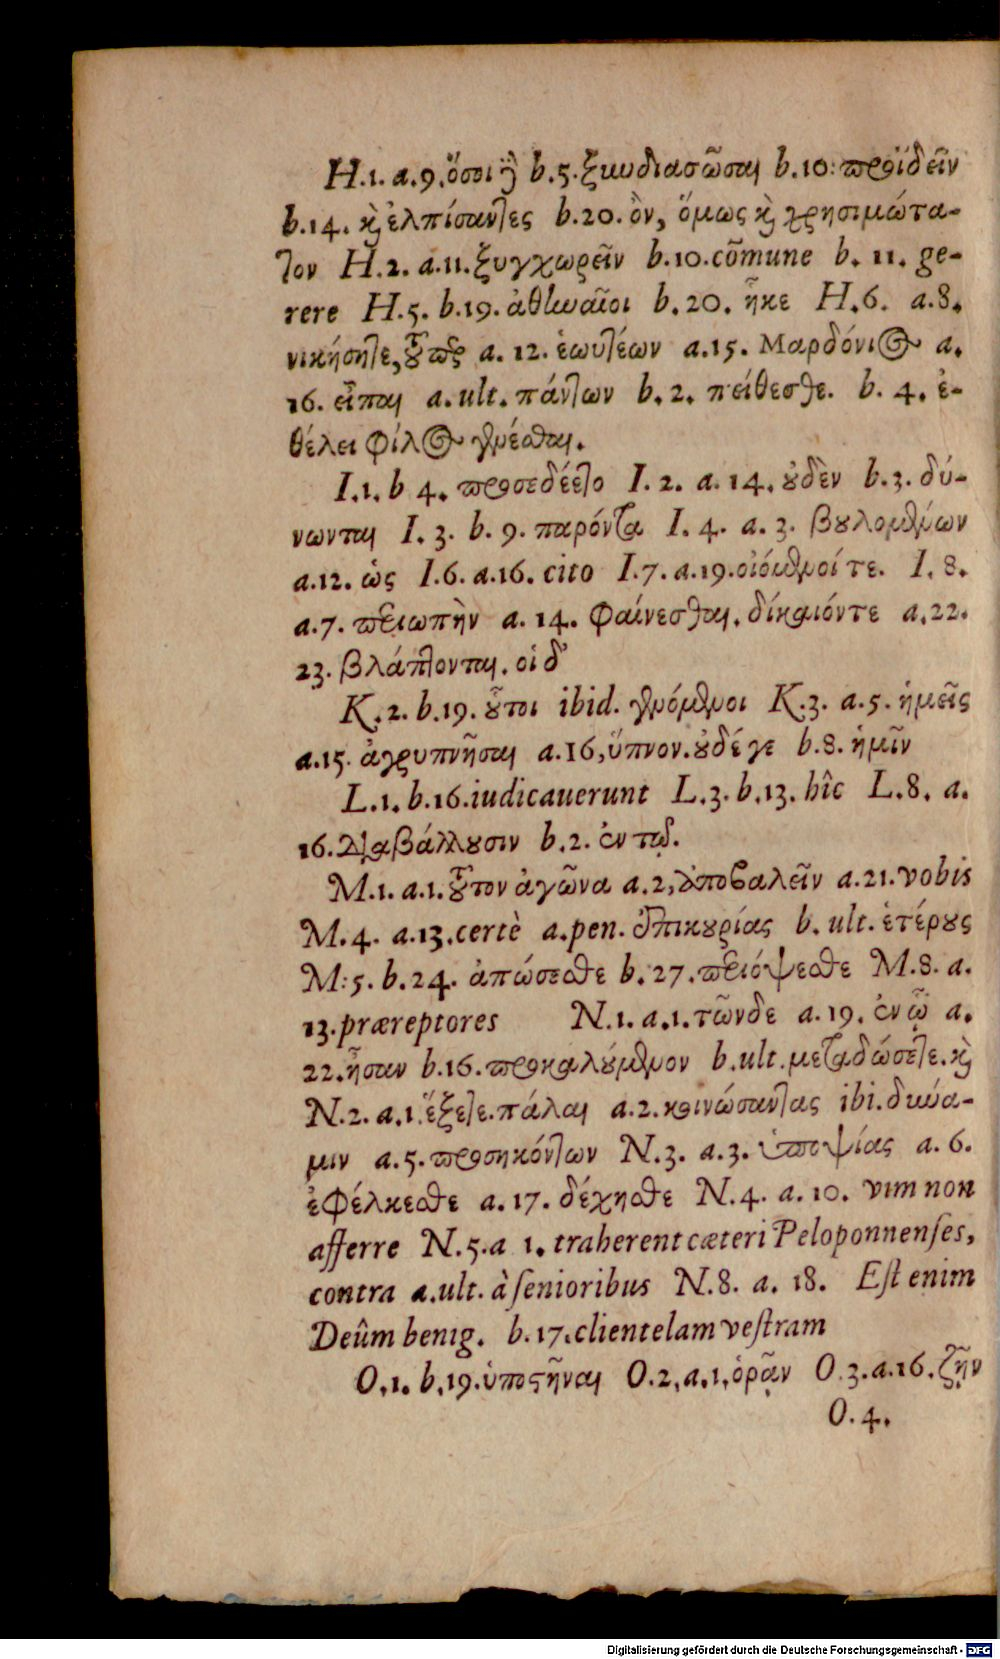 H.1. a.9. ὅσοι δὲ b.5. ξυνδιασῶσαι b.10: προϊδεῖν
b.14. καὶ ἐλπίσαντες b.20. ὂν, ὅμως καὶ χρησιμώτα-
τον H.2. a.11. ξυγχωρεῖν b.10. cõmune b. 11. ge-
rere H.5. b.19. ἀθηναῖοι b.20. ἧκε H.6. a.8.
νικήσητε, a. 12. ἑωυτέων a.15. Μαρδόνιος a.
16. εἶπαι a. ult. πάντων b. 2. πείθεσθε. b. 4. ἐ-
θέλει φίλος γενέσθαι.
I.1. b 4. προσεδέετο I. 2. a. 14. οὐδὲν b.3. δύ-
νωνται I. 3. b. 9. παρόντα I. 4. a. 3. βουλομένων
a.12. ὡς I.6. a.16. cito I.7. a.19. οἱόμενοί τε. I. 8.
a.7. περιωπὴν a. 14. φαίνεσθαι. δίκαιόντε a.22.
23. βλάπτονται. οἱ δ'
K.2. b.19. οὗτοι ibid. γενόμενοι K.3. a.5. ἡμεῖς
a.15. ἀγρυπνῆσαι a.16, ὕπνον. οὐδέγε b.8. ἡμῖν
L.1. b.16. iudicauerunt L.3. b.13. hîc L.8. a.
16. διαβάλλουσιν b.2. ἐν τῳ.
M.1. a.1. τοῦτον ἀγῶνα a.2, ἀποβαλεῖν a.21. vobis
M.4. a.13. certè a.pen. ἐπικουρίας b. ult. ἑτέρους
M:5. b.24. ἀπώσεσθε b.27. περιόψεσθε M.8. a.
13. præreptores N.1. a.1. τῶνδε a.19. ἐν ᾧ a.
22. ἦσαν b.16. προκαλούμενον b.ult. μεταδώσετε. καὶ
N.2. a.1. ἕξετε. πάλαι a.2. κοινώσαντας ibi. δυνά-
μιν a.5. προσηκόντων N.3. a.3. ὑποψίας a. 6.
ἐφέλκεσθε a. 17. δέχησθε N.4. a. 10. vim non
afferre N.5. a 1. traherent cæteri Peloponnenſes,
contra a.ult. à ſenioribus N.8. a. 18. Eſt enim
Deûm benig. b.17. clientelam veſtram
O.1. b.19. ὑποστῆναι O.2, a.1, ὁρᾷν O.3. a.16. ζῇν
O. 4.
Digitalisierung gefördert durch die Deutsche Forschungsgemeinschaft - DFG